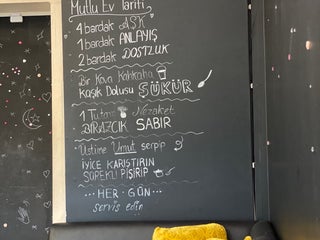 Mutlu Ev Tarifi
4 bardak AŞK
1 bardak ANLAYIŞ
2 bardak DOSTLUK
Bir Kova Kahkaha
Kaşık Dolusu ŞÜKÜR
1 Tutam Nezaket
BİRAZCIK SABIR
Üstüne Umut serpip
İYİCE KARIŞTIRIN
SÜREKLİ PİŞİRİP
... HER GÜN ...
servis edin